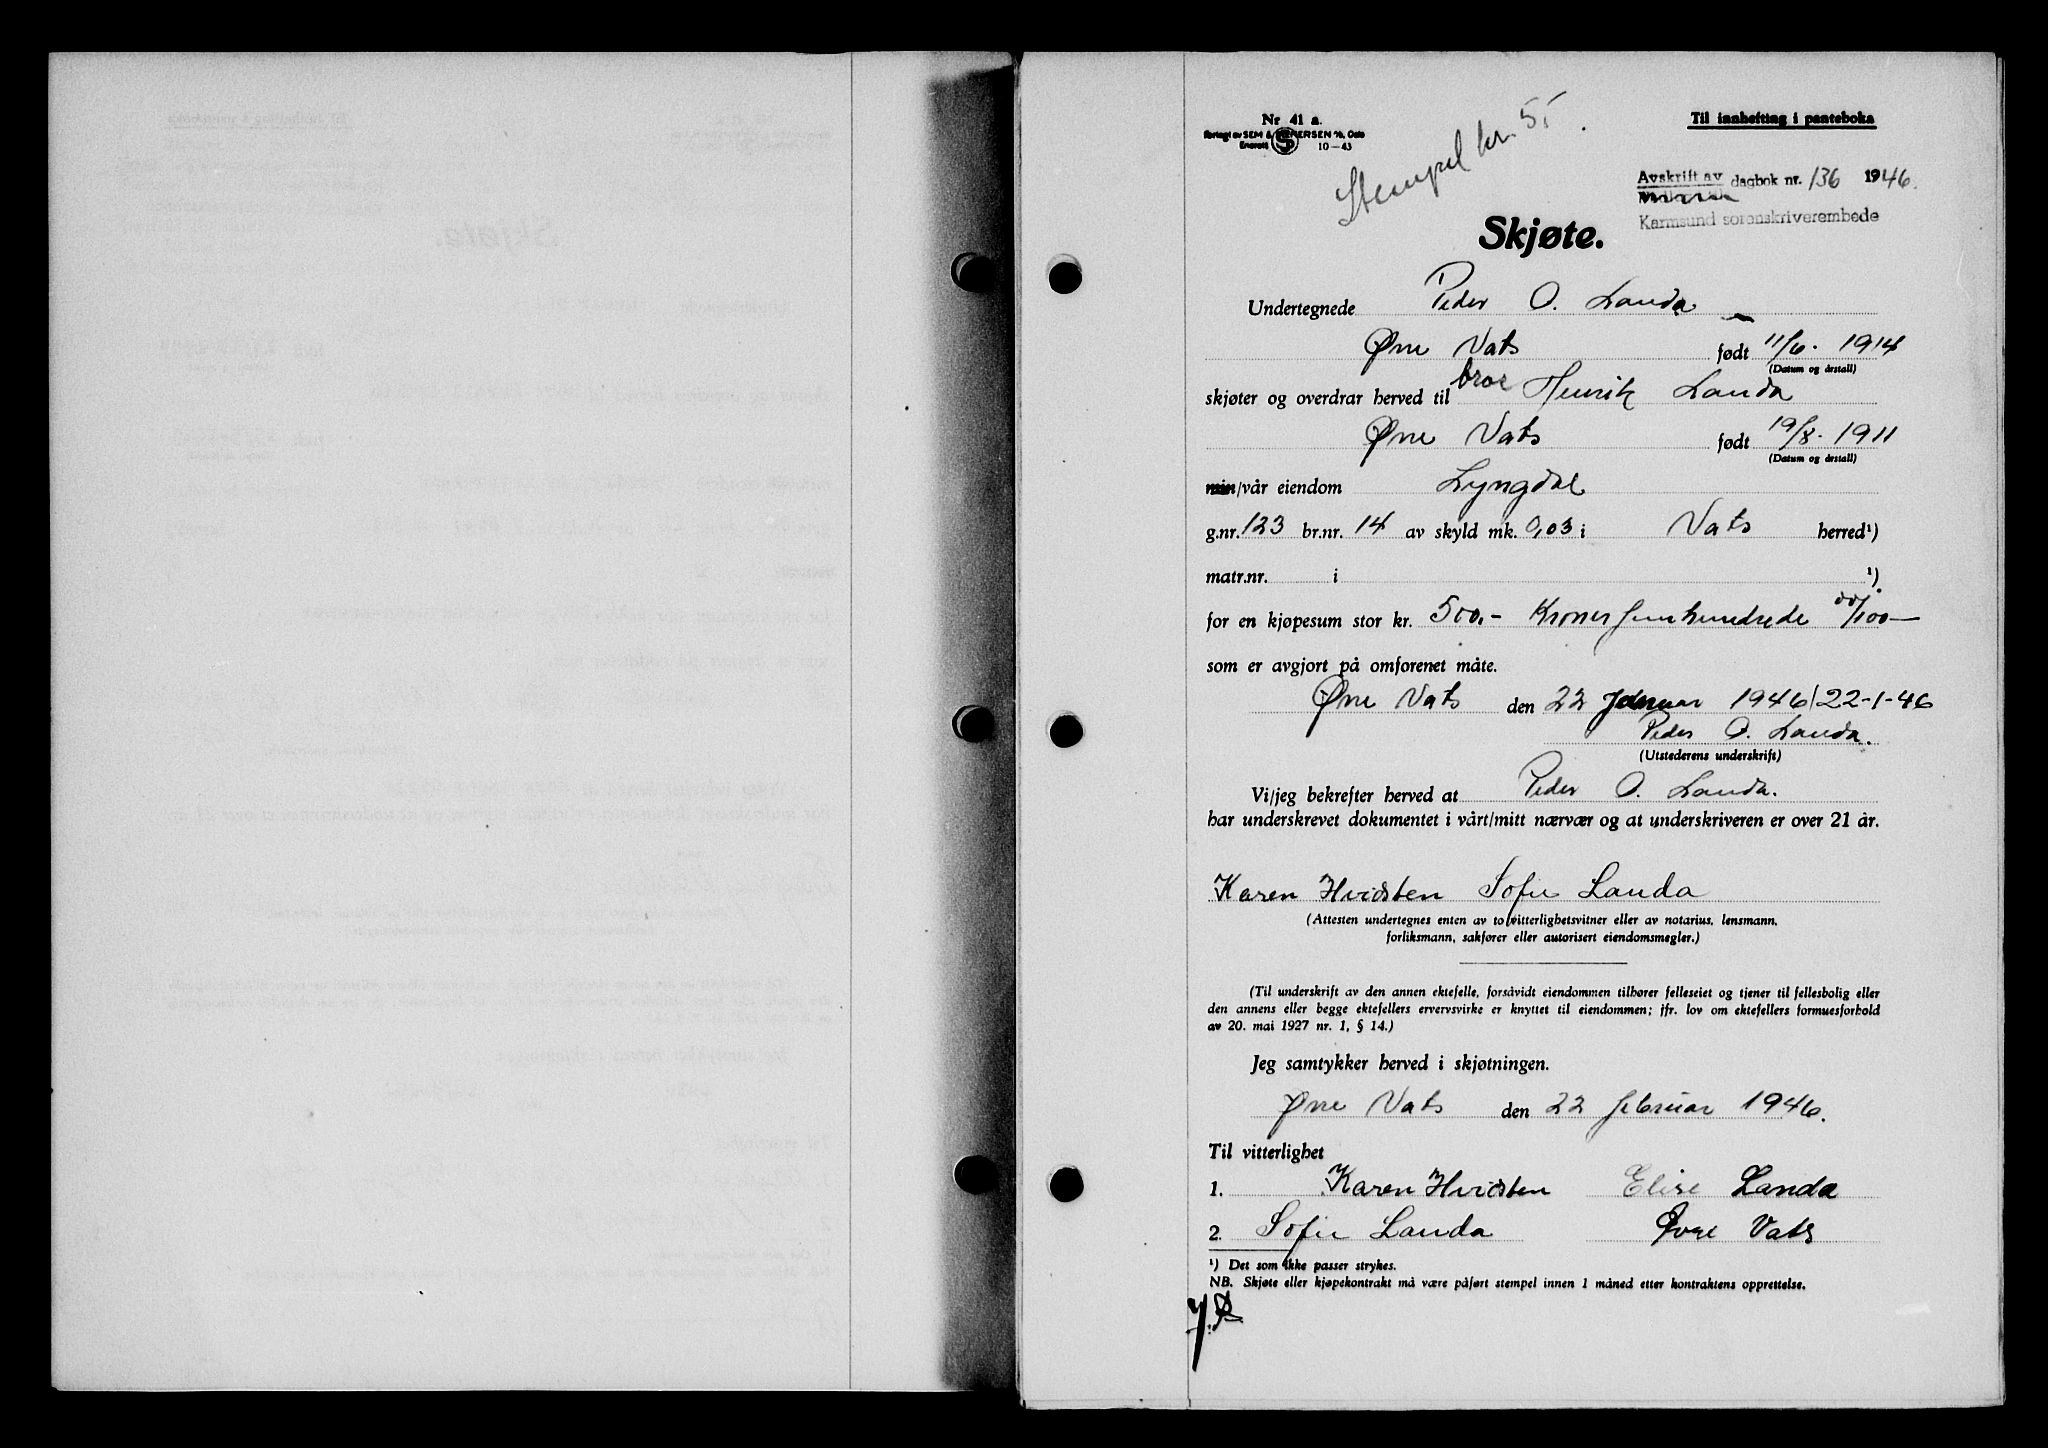 Nr 41 a.
Forlagt av SEM & STENERSEN A/S, Oslo
Enerett 10—43
Stempel kr. 5,-
Til innhefting i panteboka
Avskrift av dagbok nr. 136 1946.
Karmsund sorenskriverembede
Skjøte.
Undertegnede Peder O. Landa
Øvre Vats født 11/6. 1914
(Datum og årstall)
skjøter og overdrar herved til bror Henrik Landa
Øvre Vats født 19/8. 1911
(Datum og årstall)
min/vår eiendom Lyngdal
g.nr. 123 br.nr. 14 av skyld mk. 0,03 i Vats herred¹)
matr.nr. i ¹)
for en kjøpesum stor kr. 500,- Kroner femhundrede 00/100—
som er avgjort på omforenet måte.
Øvre Vats den 22 Januar 1946/22-1-46
Peder O. Landa.
(Utstederens underskrift)
Vi/jeg bekrefter herved at Peder O. Landa.
har underskrevet dokumentet i vårt/mitt nærvær og at underskriveren er over 21 år.
Karen Hvidsten Sofie Landa
(Attesten undertegnes enten av to vitterlighetsvitner eller av notarius, lensmann,
forliksmann, sakfører eller autorisert eiendomsmegler.)
(Til underskrift av den annen ektefelle, forsåvidt eiendommen tilhører felleseiet og tjener til fellesbolig eller
den annens eller begge ektefellers ervervsvirke er knyttet til eiendommen; jfr. lov om ektefellers formuesforhold
av 20. mai 1927 nr. 1, § 14.)
Jeg samtykker herved i skjøtningen.
Øvre Vats den 22 februar 1946.
Til vitterlighet
1. Karen Hvidsten Elise Landa
2. Sofie Landa Øvre Vats
¹) Det som ikke passer strykes.
NB. Skjøte eller kjøpekontrakt må være påført stempel innen 1 måned etter kontraktens opprettelse.